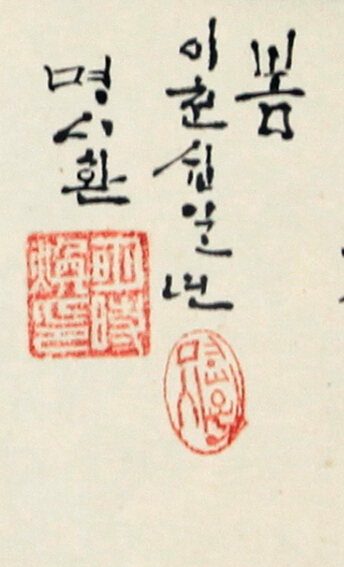 봄
이천십일년
명시환